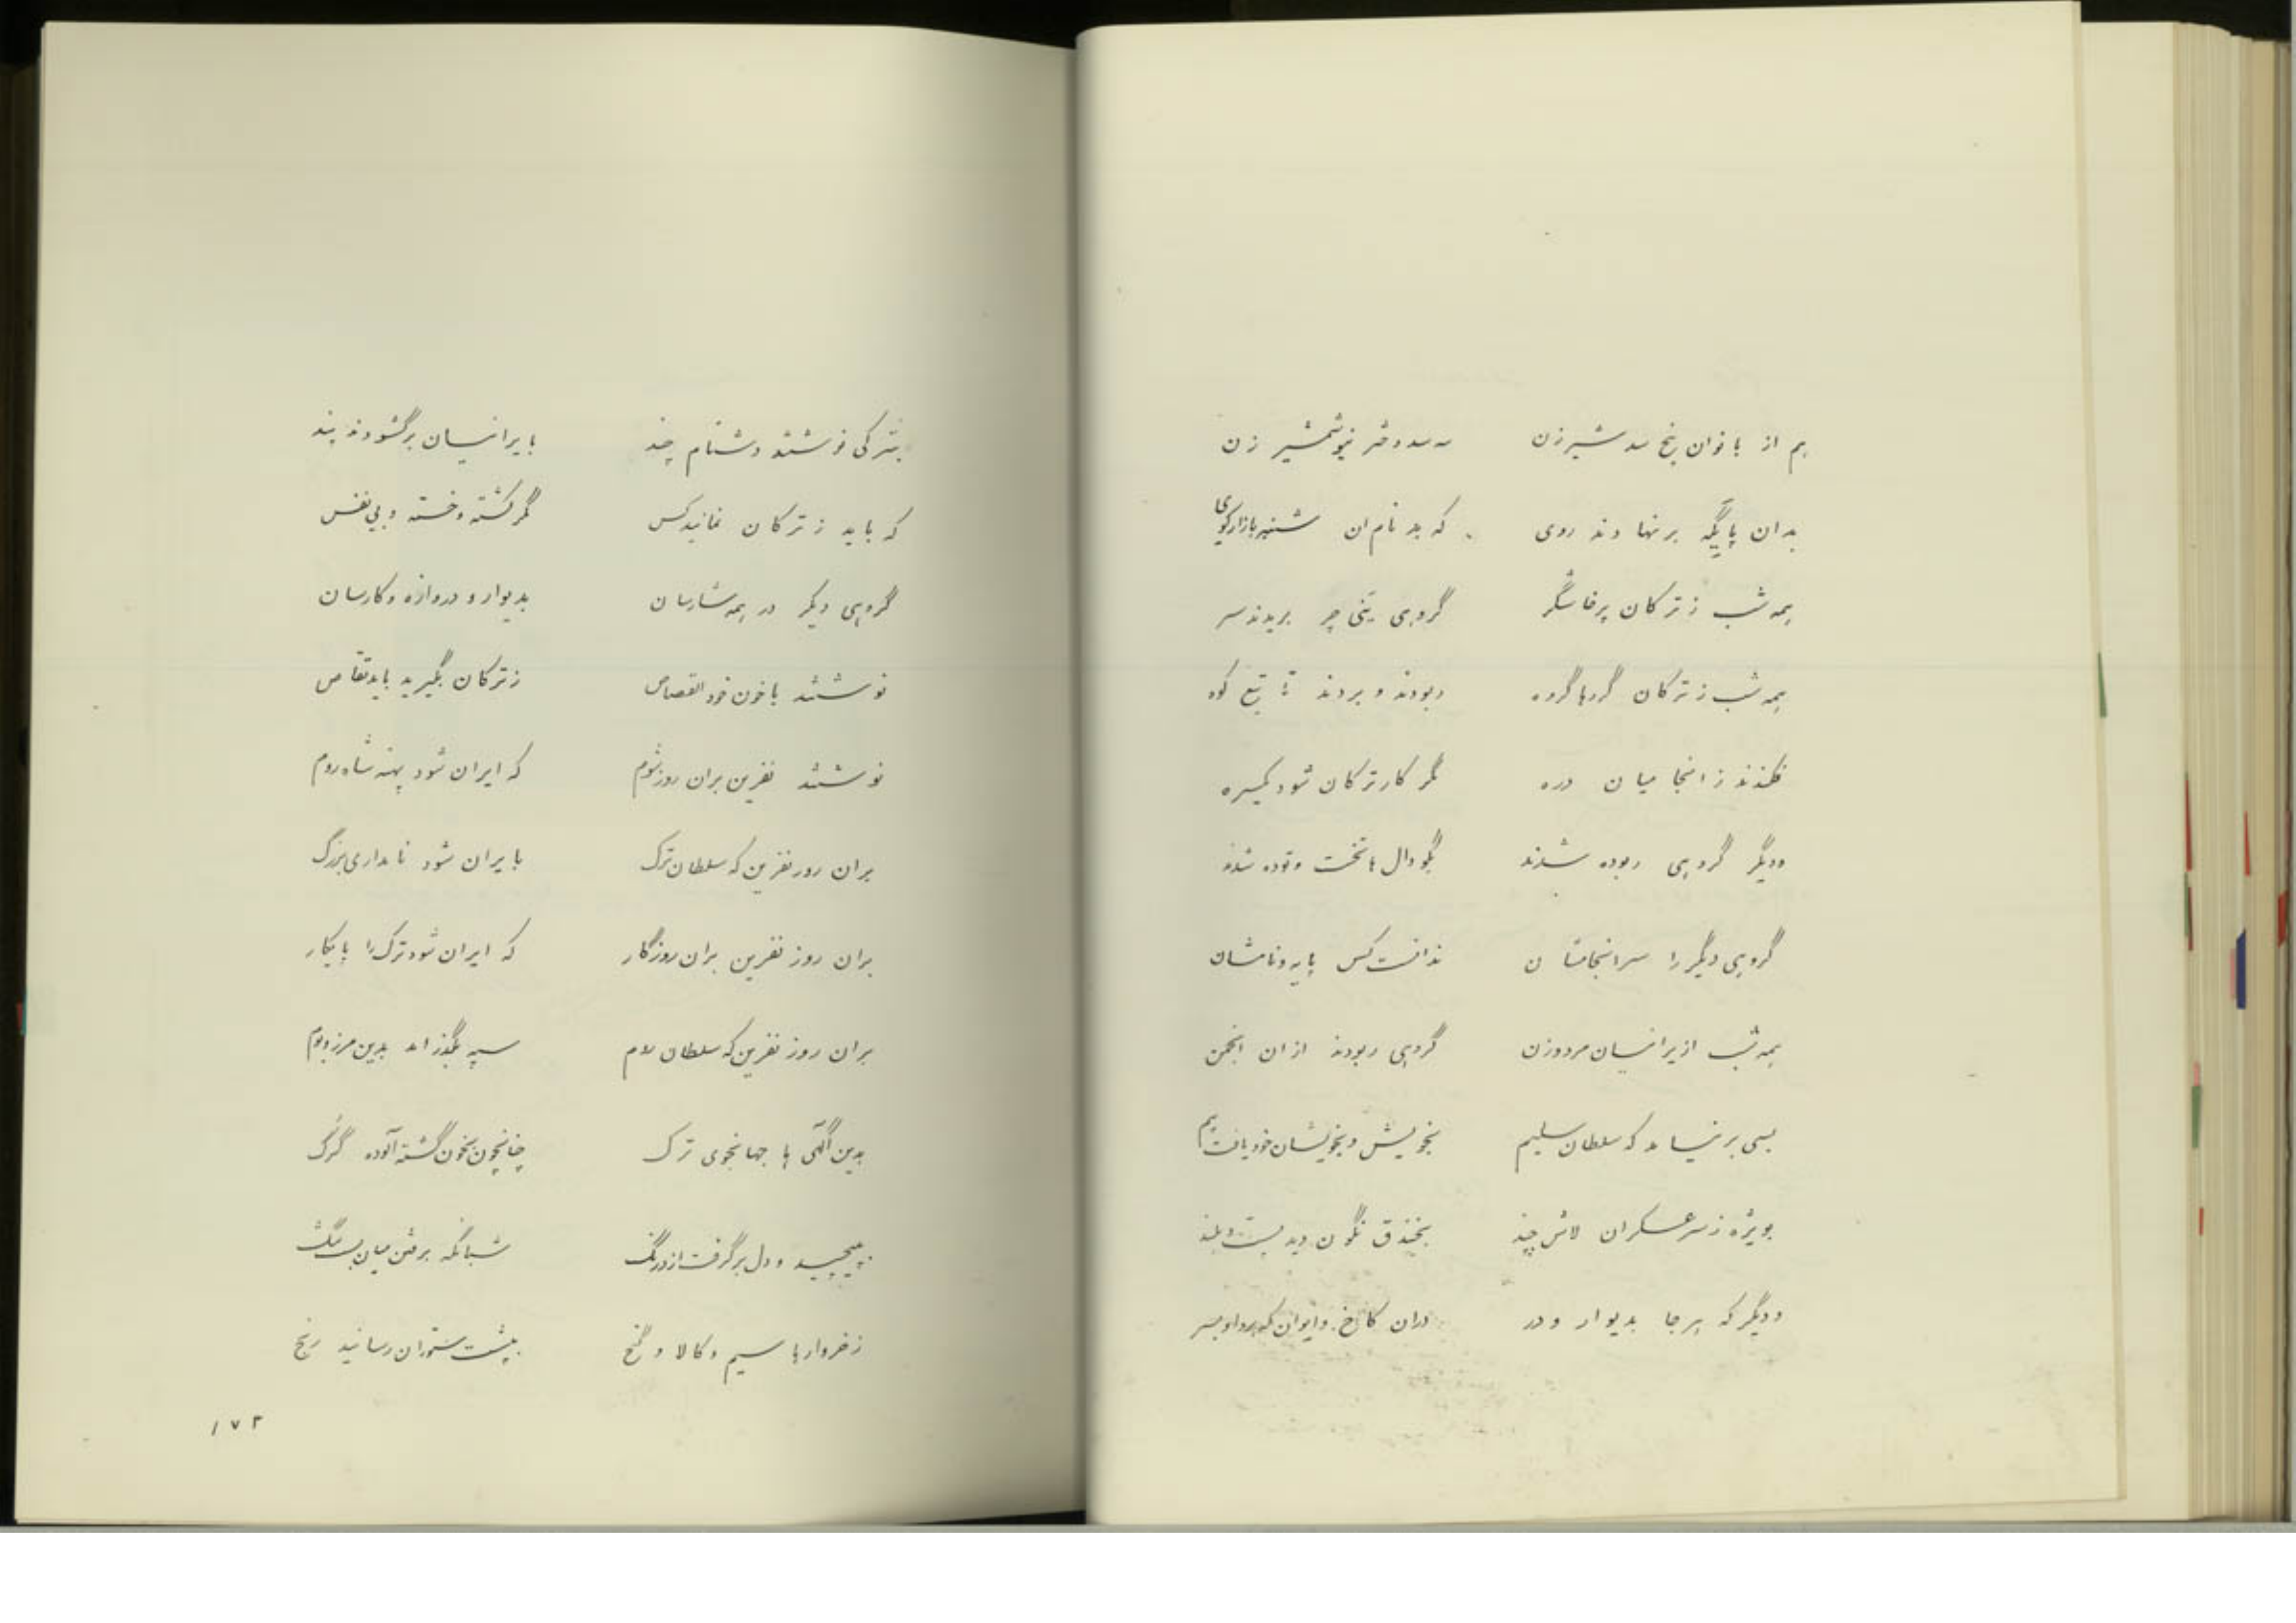 هم از بانوان پنج سد شیرزن سه سد دختر نیو شمشیر زن
بدان پایگه برنهادند روی که بد نام ان شنبه بازار کوی
همه شب ز ترکان پرخاشگر گروهی بریدند سر
همه شب ز ترکان گروها گروه ربودند و بردند تا تیغ کوه
فکندند زانجا میان دره مگر کار ترکان شود یکسره
ودیگر گروهی ربوده شدند بگودال ها تخت و توده شدند
گروهی دیگر را سرانجامشان ندانست کس پایه و نامشان
همه شب از یرانیسان مرد و زن گروهی ربودند ازان انجمن
بسی بر نیامد که سلطان سلیم بخویش و بخویشان خود یافت بیم
بویژه ز سر عسکران لاش چند بخندق نگون دید پست و بلند
ودیگر که هر جا بدیوار و در دران کاخ و ایوان که
بترکی نوشتند دشنام چند بایرانیسان برگشودند پند
که باید ز ترکان نمانید کس مگر کشته و خسته و بی نفس
گروهی دیگر در همه شارسان بدیوار و دروازه و کارسان
نوشتند با خون خود القصاص ز ترکان بگیرید باید تقاص
نوشتند نفرین بران روز شوم که ایران شود پهنه شاه روم
بران روز نفرین که سلطان ترک بایران شود نامداری بزرگ
بران روز نفرین بران روزگار که ایران شود ترک را پایکار
بران روز نفرین که سلطان روم سپه بگذراند بدین مرز و بوم
بدین آگهی ها جهانجوی ترک چنانچون بخون گشته آلوده گرگ
بپیچید و دل برگرفت از درنگ شبانگه برفتن میان بست تنگ
ز خروارها سیم و کالا و گنج بپشت ستوران رسانید رنج
۱۷۳